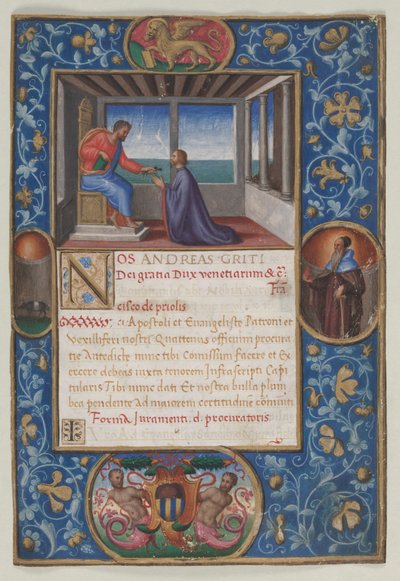 NOS ANDREAS GRITI
Dei gratia Dux venetiarum & c̃.
Frã
cisco de priolis
Apostoli et Evangeliste Patroni et
Vexilliferi nostri Quattenus officium procura
tie Antedicte nunc tibi Comissum facere et Ex
ercere debeas iuxta tenorem Infrascripti Capi
tularis Tibi nunc dati Et nostra bulla plum
bea pendente Ad maiorem certitudinẽ cõmuniti
Forma Iuramenti .d. procuratoris.
I